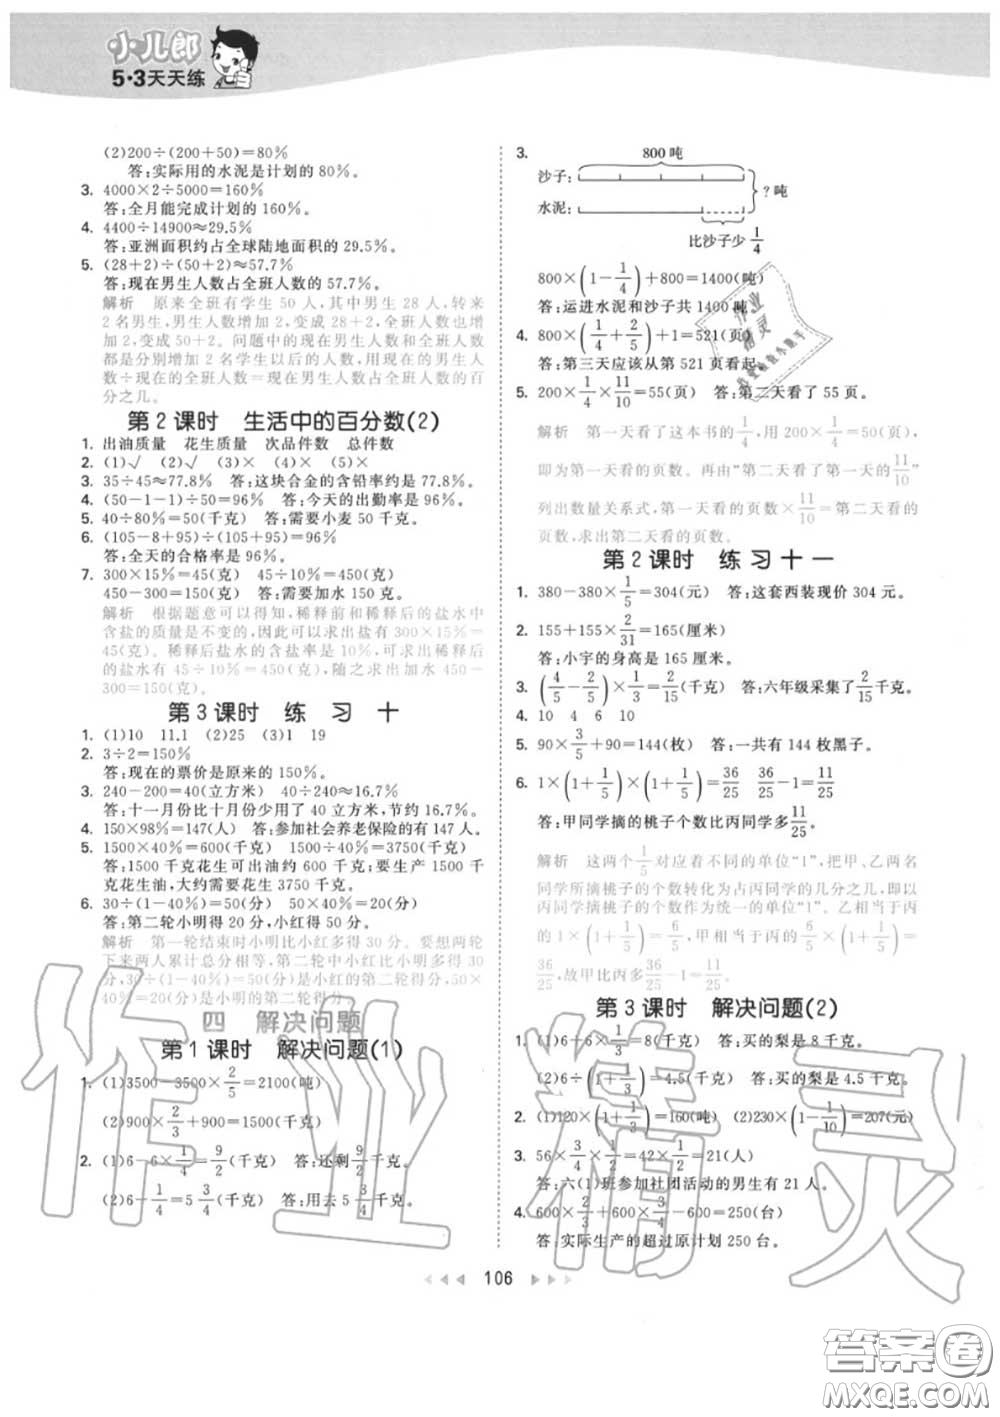 小儿郎
5·3天天练
(2)200÷(200+50)=80%
答:实际用的水泥是计划的 80%。
3. 4000×2÷5000=160%
答:全月能完成计划的 160%。
4. 4400÷14900≈29.5%
答:亚洲面积约占全球陆地面积的 29.5%。
5. (28+2)÷(50+2)≈57.7%
答:现在男生人数占全班人数的 57.7%。
解析 原来全班有学生 50 人,其中男生 28 人,转来
2 名男生,男生人数增加 2,变成 28+2,全班人数也增
加 2,变成 50+2。问题中的现在男生人数和全班人数
都是分别增加 2 名学生以后的人数,用现在的男生人
数÷现在的全班人数=现在男生人数占全班人数的百
分之几。
第 2 课时 生活中的百分数(2)
1. 出油质量 花生质量 次品件数 总件数
2. (1)√ (2)√ (3)× (4)× (5)×
3. 35÷45≈77.8% 答:这块合金的含铅率约是 77.8%。
4. (50-1-1)÷50=96% 答:今天的出勤率是 96%。
5. 40÷80%=50(千克) 答:需要小麦 50 千克。
6. (105-8+95)÷(105+95)=96%
答:全天的合格率是 96%。
7. 300×15%=45(克) 45÷10%=450(克)
450-300=150(克) 答:需要加水 150 克。
解析 根据题意可以得知,稀释前和稀释后的盐水中
含盐的质量是不变的,因此可以求出盐有 300×15%=
45(克)。稀释后盐水的含盐率是 10%,可求出稀释后
的盐水有 45÷10%=450(克),随之求出加水 450-
300=150(克)。
第 3 课时 练 习 十
1. (1)10 11.1 (2)25 (3)1 19
2. 3÷2=150%
答:现在的票价是原来的 150%。
3. 240-200=40(立方米) 40÷240≈16.7%
答:十一月份比十月份少用了 40 立方米,节约 16.7%。
4. 150×98%=147(人) 答:参加社会养老保险的有 147 人。
5. 1500×40%=600(千克) 1500÷40%=3750(千克)
答:1500 千克花生可出油约 600 千克;要生产 1500 千
克花生油,大约需要花生 3750 千克。
6. 30÷(1-40%)=50(分) 50×40%=20(分)
答:第二轮小明得 20 分,小红得 50 分。
解析 第一轮结束时小明比小红多得 30 分。要想两轮
下来两人累计总分相等,第二轮中小明比小红少得 30
分。30÷(1-40%)=50(分)是小红的第二轮得分,50×
40%=20(分)是小明的第二轮得分。
四 解决问题
第 1 课时 解决问题(1)
1. (1)3500-3500×2/5=2100(吨)
(2)900×2/3+900=1500(千克)
2. (1)6-6×1/4=9/2(千克) 答:还剩9/2千克。
(2)6-1/4=5 3/4(千克) 答:用去 5 3/4千克。
3.
800 吨
沙子:
水泥:
? 吨
比沙子少 1/4
800×(1-1/4)+800=1400(吨)
答:运进水泥和沙子共 1400 吨。
4. 800×(1/4+2/5)+1=521(页)
答:第三天应该从第 521 页看起。
5. 200×1/4×11/10=55(页) 答:第二天看了 55 页。
解析 第一天看了这本书的1/4,用 200×1/4=50(页),
即为第一天看的页数。再由“第二天看了第一天的11/10”
列出数量关系式,第一天看的页数×11/10=第二天看的
页数,求出第二天看的页数。
第 2 课时 练 习 十 一
1. 380-380×1/5=304(元) 答:这套西装现价 304 元。
2. 155+155×2/31=165(厘米)
答:小宇的身高是 165 厘米。
3. (4/5-2/5)×1/3=2/15(千克) 答:六年级采集了2/15千克。
4. 10 4 6 10
5. 90×3/5+90=144(枚) 答:一共有 144 枚黑子。
6. 1×(1+1/5)×(1+1/5)=36/25 36/25-1=11/25
答:甲同学摘的桃子个数比丙同学多11/25。
解析 这两个1/5对应着不同的单位“1”,把甲、乙两名
同学所摘桃子的个数转化为占丙同学的几分之几,即以
丙同学摘桃子的个数作为统一的单位“1”。乙相当于丙
的 1×(1+1/5)=6/5,甲相当于丙的6/5×(1+1/5)=
36/25,故甲比丙多36/25-1=11/25。
第 3 课时 解决问题(2)
1. (1)6+6×1/3=8(千克) 答:买的梨是 8 千克。
(2)6÷(1+1/3)=4.5(千克) 答:买的梨是 4.5 千克。
2. (1)120×(1+1/3)=160(吨) (2)230×(1-1/10)=207(元)
3. 56×3/4×1/2=42×1/2=21(人)
答:六(1)班参加社团活动的男生有 21 人。
4. 600×2/3+600×3/4-600=250(台)
答:实际生产的超过原计划 250 台。
106
作业精灵
答案圈
MXQE.COM